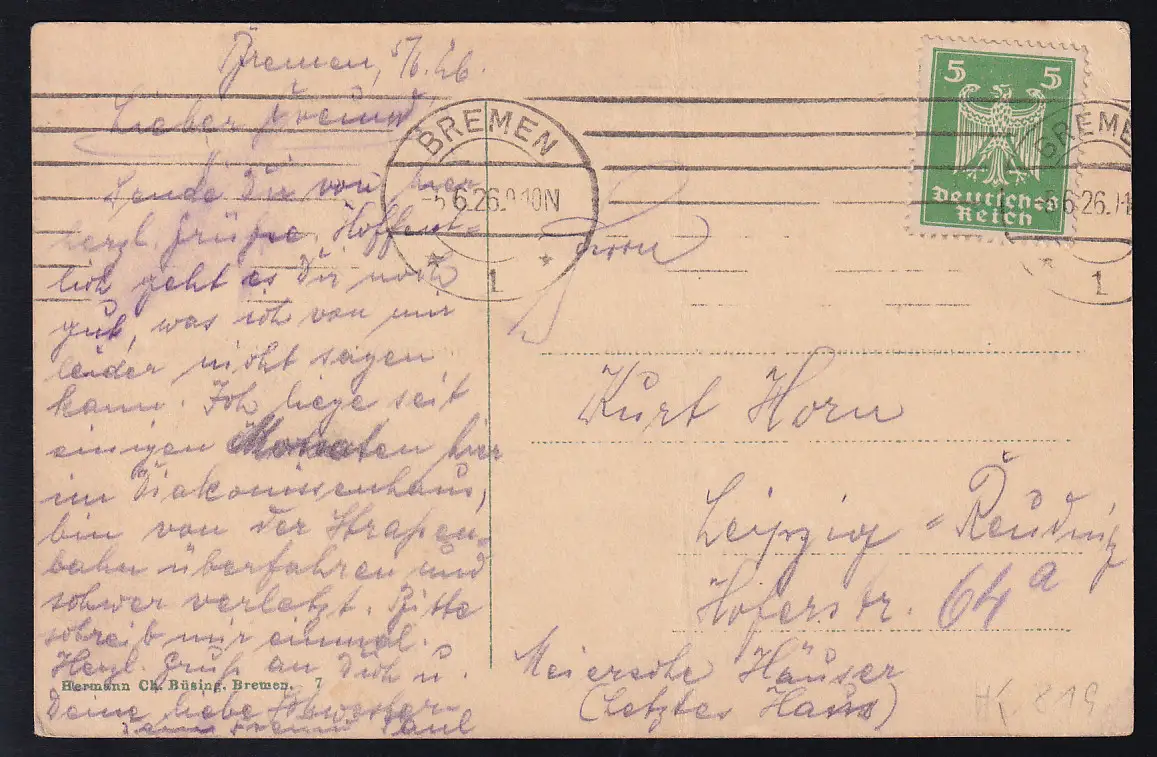 Bremen, 5/6.26.
Lieber Freund
Sende Dir von hier
herzl. Grüße. Hoffent-
lich geht es Dir noch
gut, was ich von mir
leider nicht sagen
kann. Ich liege seit
einigen Monaten hier
im Diakonissenhaus,
bin von der Straßen-
bahn überfahren und
schwer verletzt. Bitte
schreib mir einmal.
Herzl. Gruß an Dich u.
Deine liebe Schwester
Dein Freund Paul
Hermann Ch. Büsing, Bremen. 7
BREMEN
-5.6.26.9-10N
* 1 *
5 5
Deutsches
Reich
BREME
5.6.26.
* 1
Herrn
Kurt Horn
Leipzig = Reudnitz
Hoferstr. 64a
Meiersche Häuser
(Letztes Haus)
819